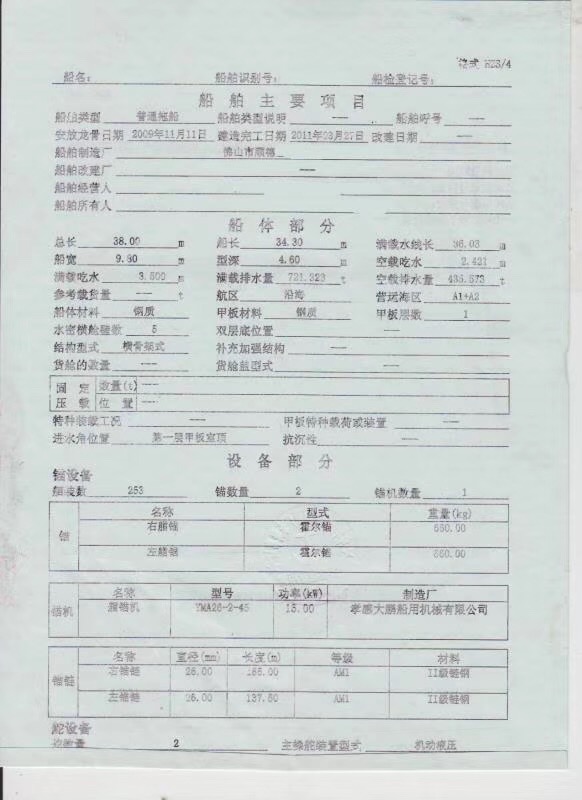 格式 HZS/4
船名： 船舶识别号： 船检登记号：
船舶主要项目
船舶类型 普通拖船 船舶类型说明 —— 船舶呼号 ——
安放龙骨日期 2009年11月11日 建造完工日期 2011年03月27日 改建日期 ——
船舶制造厂 佛山市顺德
船舶改建厂 ——
船舶经营人
船舶所有人
船体部分
总长 38.00 m 船长 34.30 m 满载水线长 36.03 m
船宽 m 型深 4.60 m 空载吃水 2.421 m
满载吃水 3.500 m 满载排水量 721.323 t 空载排水量 t
参考载货量 —— t 航区 沿海 营运海区 A1+A2
船体材料 钢质 甲板材料 钢质 甲板层数 1
水密横舱壁数 5 双层底位置 ——
结构型式 横骨架式 补充加强结构 ——
货舱的数量 —— 货舱盖型式 ——
固定 数量(t) ——
压载 位置 ——
特种装载工况 —— 甲板特种载荷或装置 ——
进水角位置 第一层甲板室顶 抗沉性 ——
设备部分
锚设备
舾装数 253 锚数量 2 锚机数量 1
名称 型式 重量(kg)
锚
右艏锚 霍尔锚 660.00
左艏锚 霍尔锚 660.00
名称 型号 功率(kW) 制造厂
锚机 艏锚机 YMA26-2-45 15.00 孝感大鹏船用机械有限公司
名称 直径(mm) 长度(m) 等级 材料
锚链
右锚链 26.00 AM1 II级链钢
左锚链 26.00 137.50 AM1 II级链钢
舵设备
舵数量 2 主操舵装置型式 机动液压